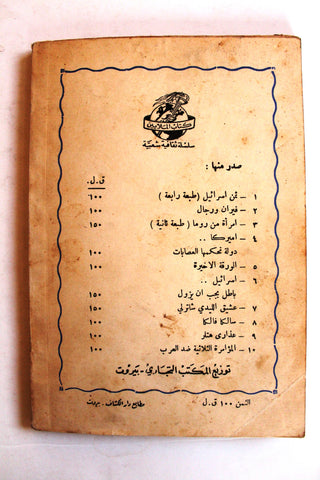 كتاب الملايين
سلسلة ثقافية شعبية
صدر منها :
ق.ل.
١ – ثمن اسرائيل (طبعة رابعة) ٦٠٠
٢ – فيران ورجال ١٠٠
٣ – امرأة من روما (طبعة ثانية) ١٥٠
٤ – اميركا ..
دولة تحكمها العصابات ١٠٠
٥ – الورقة الاخيرة ١٠٠
٦ – اسرائيل ..
باطل يجب ان يزول ١٥٠
٧ – عشيق الليدي شاترلي ١٥٠
٨ – سالكا فالكا ١٠٠
٩ – عذارى هتلر ١٠٠
١٠ – المؤامرة الثلاثية ضد العرب ١٠٠
توزيع المكتب التجاري - بيروت
الثمن ١٠٠ ق.ل
مطابع دار الكشاف . بيروت